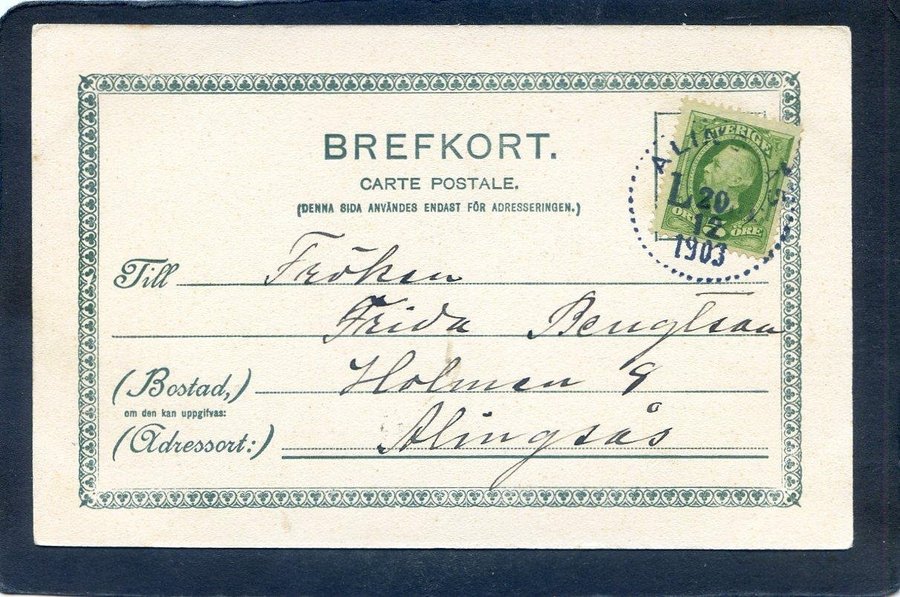 BREFKORT.
CARTE POSTALE.
(DENNA SIDA ANVÄNDES ENDAST FÖR ADRESSERINGEN.)
SVERIGE
L 20
12
1903
ÖRE
Till Fröken
Frida Bengtson
(Bostad,) Holmen 9
om den kan uppgifvas:
(Adressort:) Alingsås